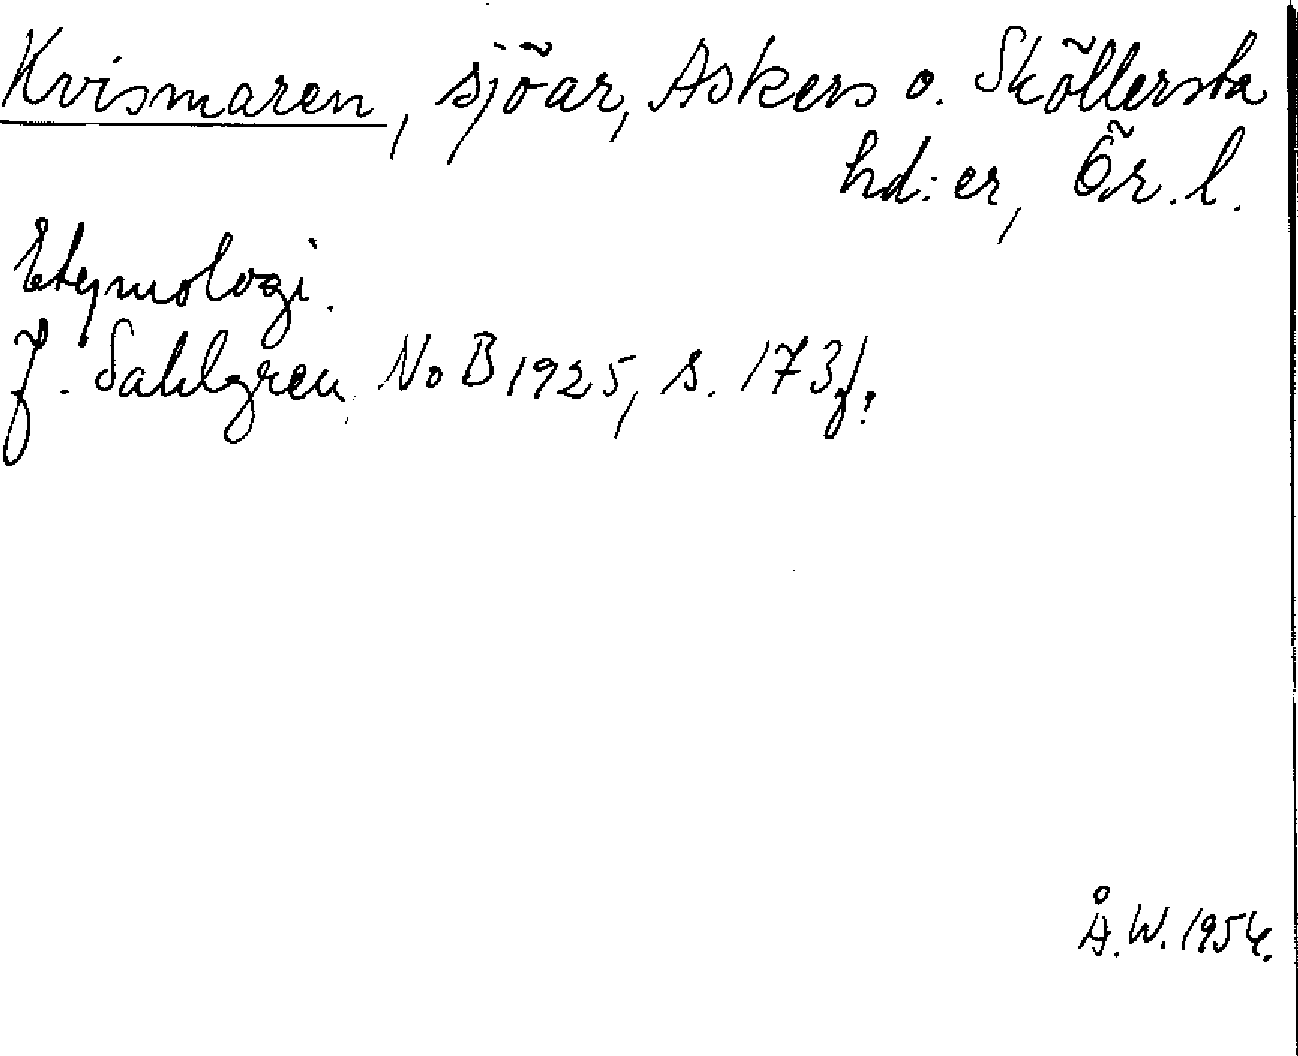 Kvismaren, sjöar, Askers o. Sköllersta
hd:er, Ör. l.
Etymologi.
J. Sahlgren, NoB 1925, s. 173f.
Å. W. 1954.